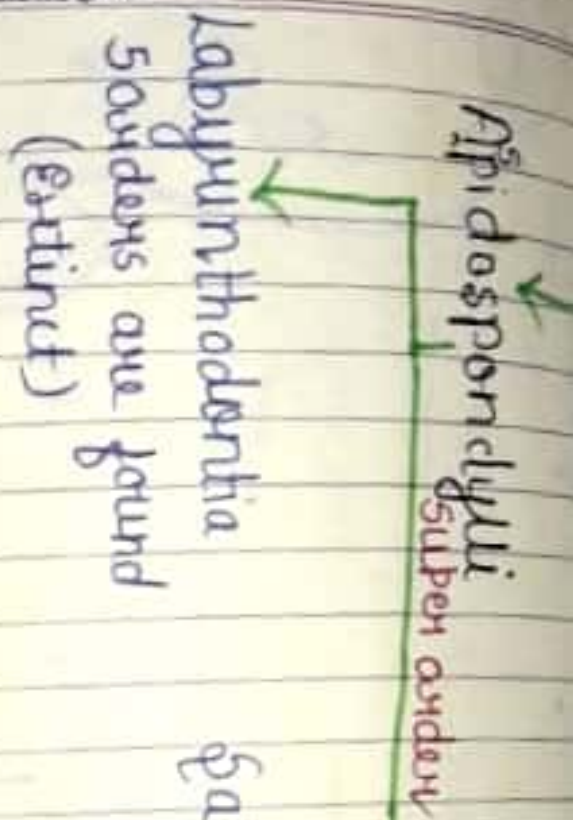 Aspidospondylli
Super order
Labyrinthodontia
5 orders are found
(Extinct)